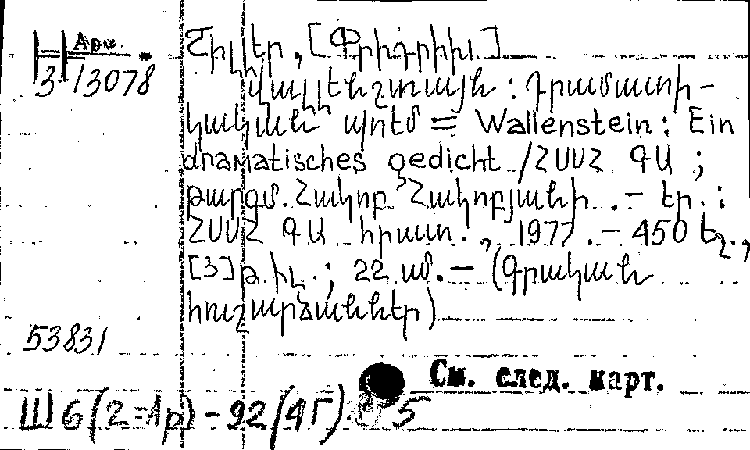 Арм.
3-13078
Շիլլեր, [Ֆրիդրիխ]
Վալլենշտայն : Դրամատի-
կական պոեմ = Wallenstein : Ein
dramatisches gedicht / ՀՍՍՀ ԳԱ ;
թարգմ. Հակոբ Հակոբյանի. – Եր. :
ՀՍՍՀ ԳԱ հրատ., 1977. – 450 էջ.,
[3] թ. իլ. ; 22 սմ. – (Գրական
հուշարձաններ)
53831
См. след. карт.
Ш6(2=Ар)-92(4Г) 5